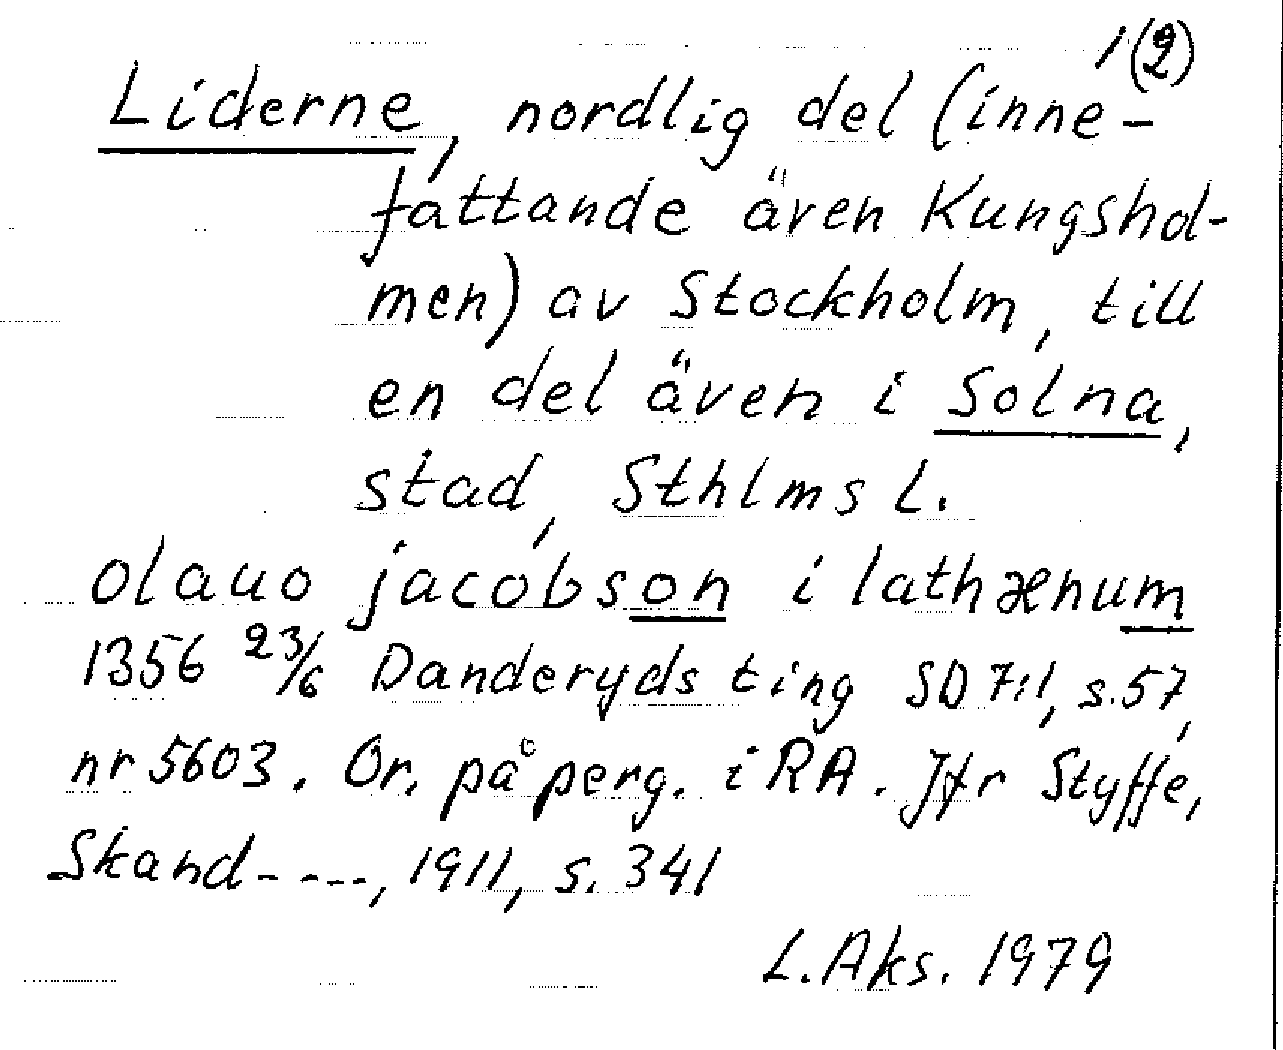 1(2)
Liderne, nordlig del (inne-
fattande även Kungshol-
men) av Stockholm, till
en del även i Solna,
stad, Sthlms L.
olauo jacobson i lathænum
1356 23/6 Danderyds ting SD 7:1, s.57,
nr 5603. Or. på perg. i RA. Jfr Styffe,
Skand----, 1911, s. 341
L. Aks. 1979